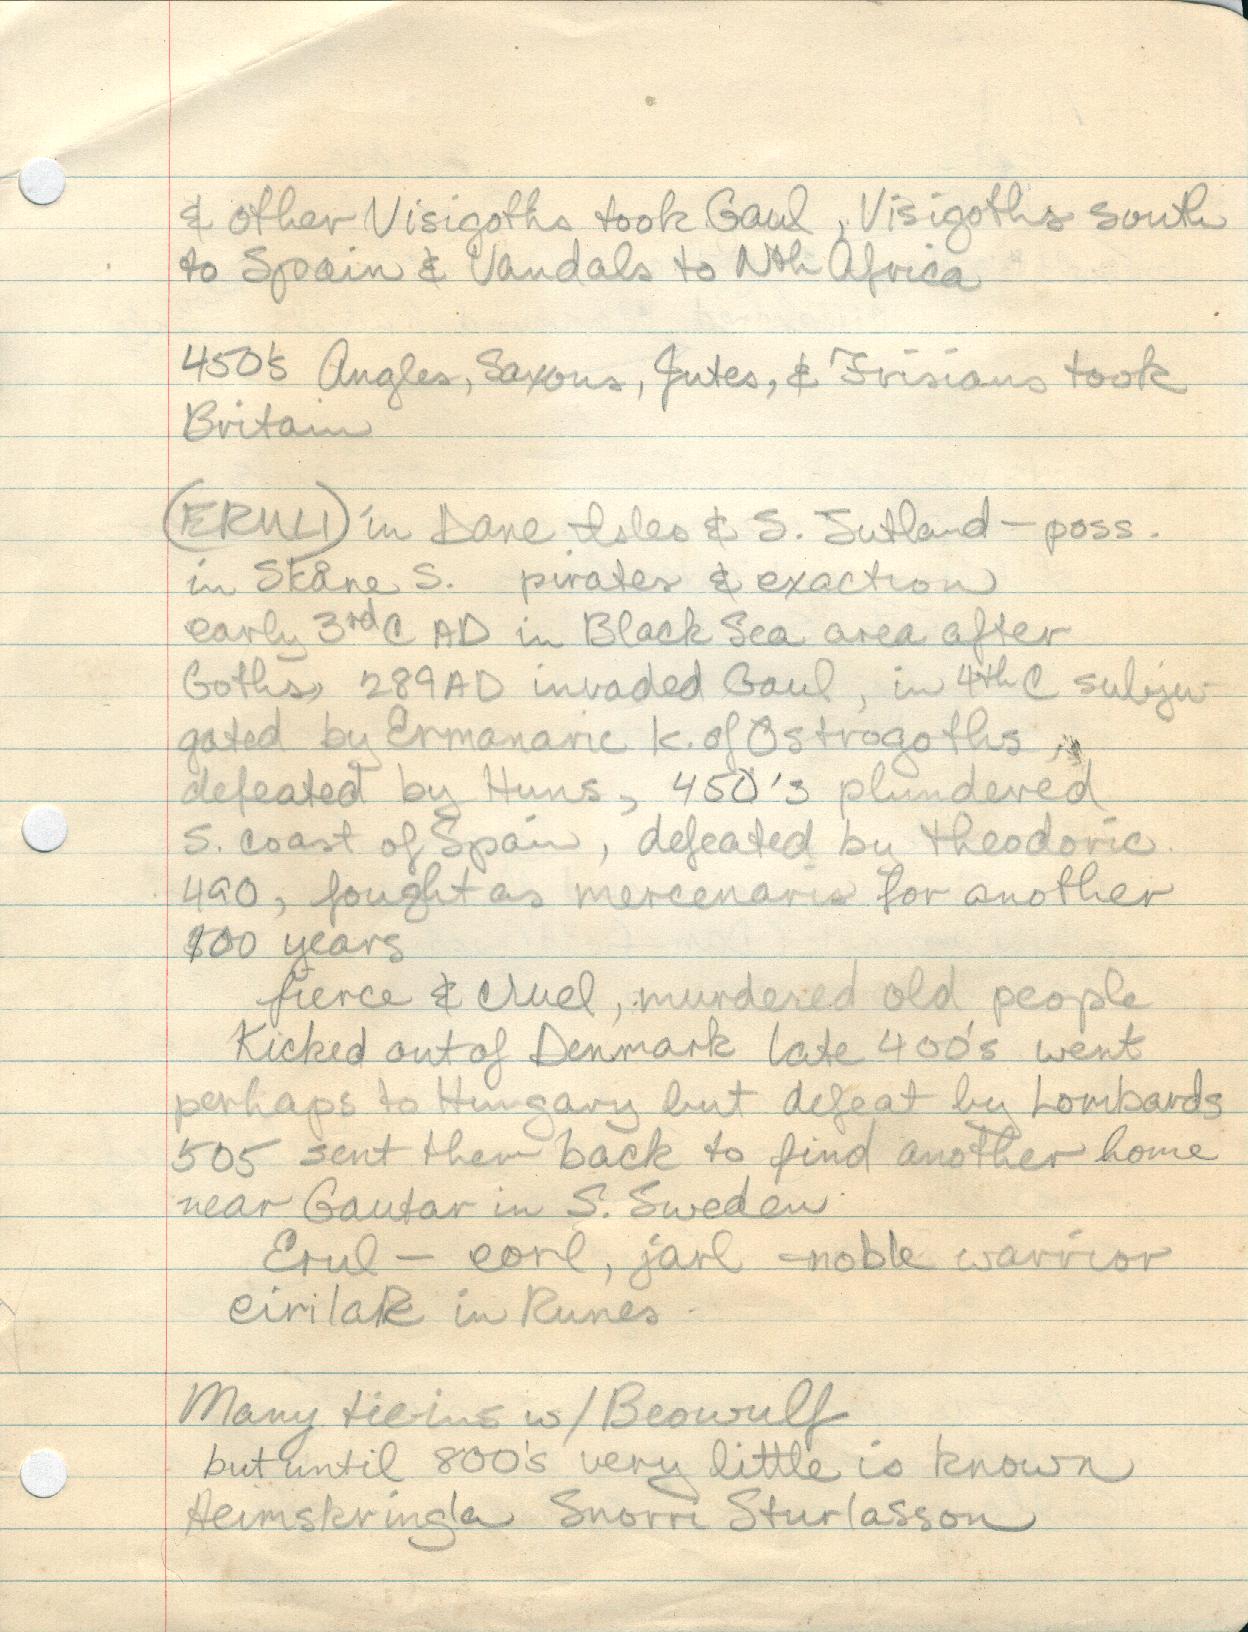 & other Visigoths took Gaul, Visigoths south
to Spain & Vandals to Nth Africa
450's Angles, Saxons, Jutes, & Frisians took
Britain
(ERULI) in Dane Isles & S. Jutland - poss.
in Skåne S. pirates & exaction
early 3rd C AD in Black Sea area after
Goths, 289 AD invaded Gaul, in 4th C subju-
gated by Ermanaric k. of Ostrogoths,
defeated by Huns, 450's plundered
S. coast of Spain, defeated by Theodoric
490, fought as mercenaris for another
100 years
fierce & cruel, murdered old people
Kicked out of Denmark late 400's went
perhaps to Hungary but defeat by Lombards
505 sent them back to find another home
near Gautar in S. Sweden
Erul - eorl, jarl - noble warrior
eirilaR in Runes.
Many tie-ins w/ Beowulf
but until 800's very little is known
Heimskringla Snorri Sturlasson